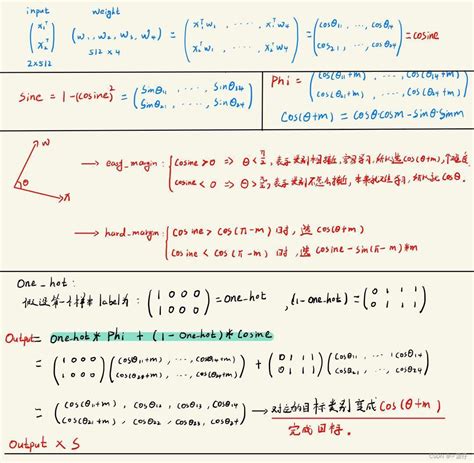 input weight
(x₁ᵀ x₂ᵀ) (w₁, w₂, w₃, w₄) = (x₁ᵀw₁, ..., x₁ᵀw₄ x₂ᵀw₁, ..., x₂ᵀw₄) = (cosθ₁₁, ..., cosθ₁₄ cosθ₂₁, ..., cosθ₂₄) = cosine
2x512 512 x 4
Sine = 1-(cosine)² = (Sinθ₁₁, ..., Sinθ₁₄ Sinθ₂₁, ..., Sinθ₂₄)
Phi = (cos(θ₁₁+m), ..., cos(θ₁₄+m) cos(θ₂₁+m), ..., cos(θ₂₄+m))
cos(θ+m) = cosθ·cosm - sinθ·sinm
w
θ
x
→ easy_margin: cosine>0 => θ<π/2, 表示类别相接近, 选cos(θ+m),
cosine<0 => θ>π/2, 表示类别不怎么接近, 本来就 cosθ.
→ hard-margin: cosine > cos(π-m) 时, 选 cos(θ+m)
cosine < cos(π-m) 时, 选 cosine - sin(π-m)*m
One_hot:
假设第一个样本label为: (1 0 0 0 1 0 0 0) = one_hot, (1-one_hot) = (0 1 1 1 0 1 1 1)
Output= onehot * Phi + (1-onehot) * Cosine
= (1 0 0 0 1 0 0 0)(cos(θ₁₁+m), ..., cos(θ₁₄+m) cos(θ₂₁+m), ..., cos(θ₂₄+m)) + (0 1 1 1 0 1 1 1)(cosθ₁₁, ..., cosθ₁₄ cosθ₂₁, ..., cosθ₂₄)
= (cos(θ₁₁+m), cosθ₁₂, cosθ₁₃, cosθ₁₄ cos(θ₂₁+m), cosθ₂₂, cosθ₂₃, cosθ₂₄) → 对应的目标类别变成 cos(θ+m)
完成目标.
Output x S